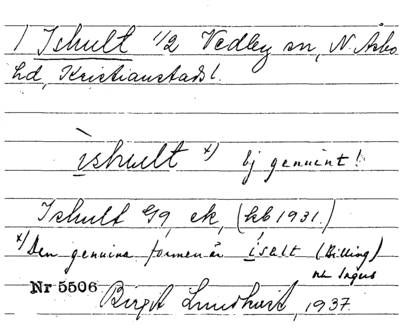 1 Ishult 1/2 Vedby sn, N. Åsbo
hd, Kristianstads l.
ìshult x) ej genuint!
Ishult G9, ek, (kb 1931.)
x) Den genuina formen är ísalt (Billing)
Nr 5506 Birgit Lundkvist, 1937.